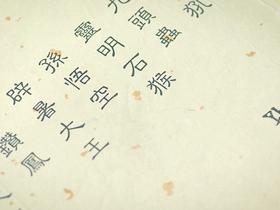 犼
九頭蟲
靈明石猴
孫悟空
辟暑大王
鑽鳳